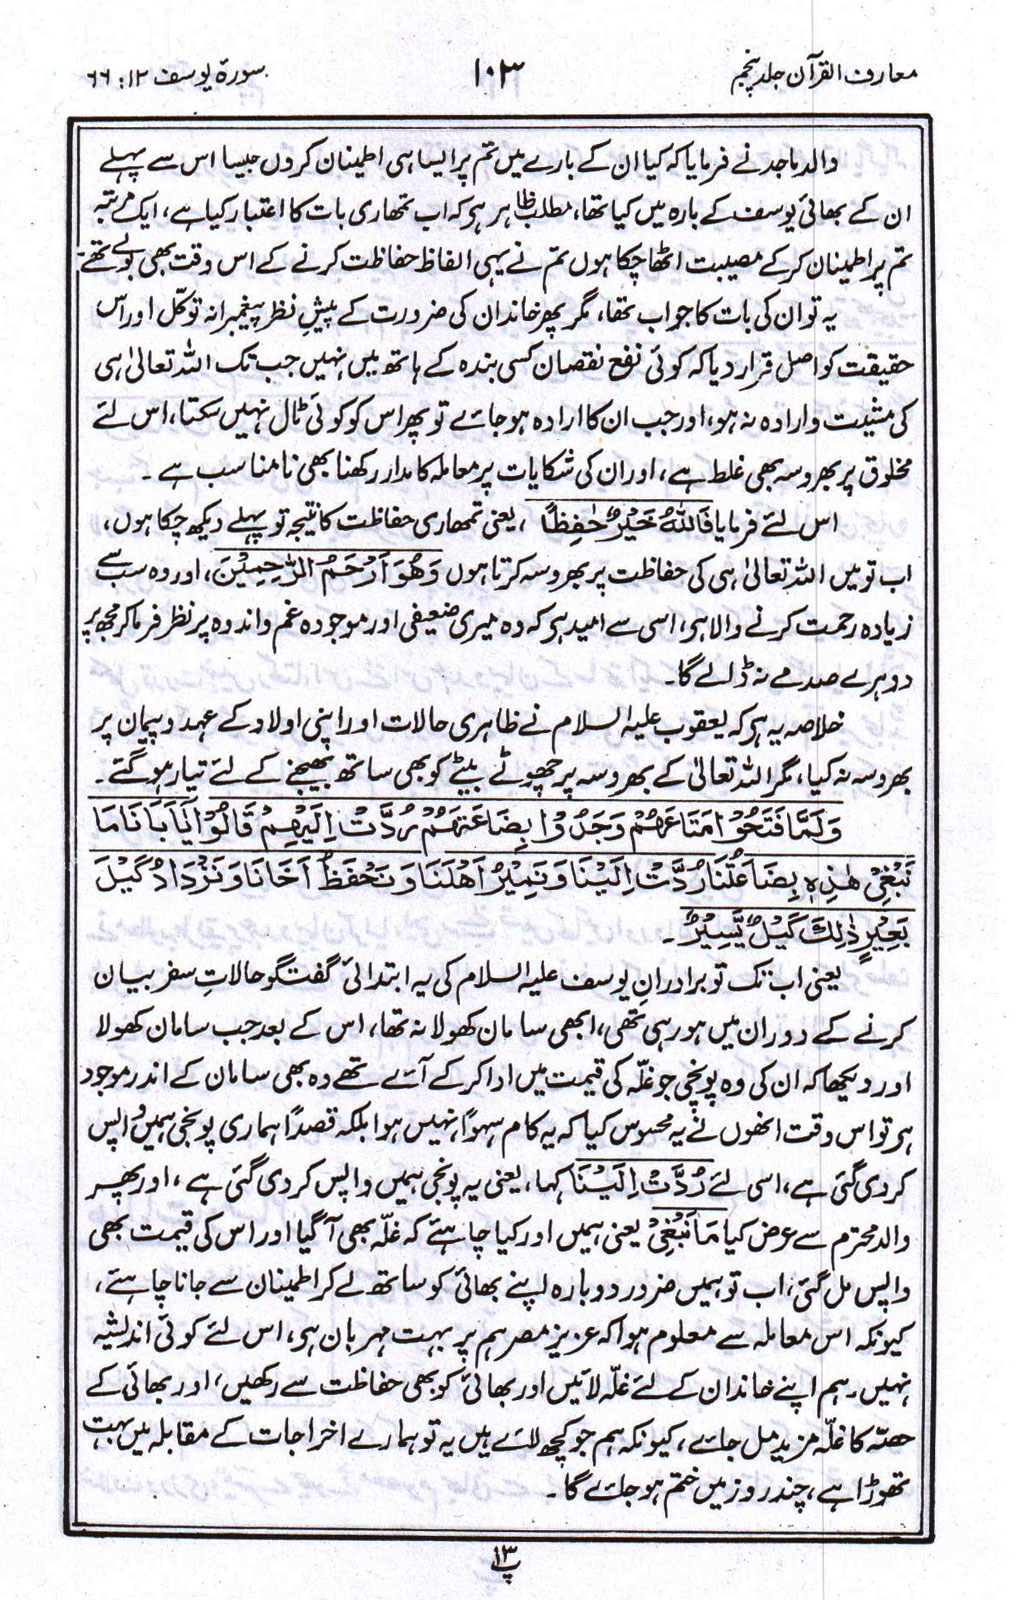 معارف القرآن جلد پنجم
۱۰۳
سورۃ یوسف ۱۲: ۶۶
والد ماجد نے فرمایا کہ کیا ان کے بارے میں تم پر ایسا ہی اطمینان کروں جیسا اس سے پہلے
ان کے بھائی یوسف کے بارہ میں کیا تھا، مطلب ظاہر ہے کہ اب تمھاری بات کا اعتبار کیا ہے، ایک مرتبہ
تم پر اطمینان کر کے مصیبت اٹھا چکا ہوں تم نے یہی الفاظ حفاظت کرنے کے اس وقت بھی بولے تھے۔
یہ تو ان کی بات کا جواب تھا، مگر پھر خاندان کی ضرورت کے پیشِ نظر پیغمبرانہ توکّل اور اس
حقیقت کو اصل قرار دیا کہ کوئی نفع نقصان کسی بندہ کے ہاتھ میں نہیں جب تک اللہ تعالیٰ ہی
کی مشیت و ارادہ نہ ہو، اور جب ان کا ارادہ ہو جائے تو پھر اس کو کوئی ٹال نہیں سکتا، اس لئے
مخلوق پر بھروسہ بھی غلط ہے، اور ان کی شکایات پر معاملہ کا مدار رکھنا بھی نامناسب ہے۔
اس لئے فرمایا فَاللّٰهُ خَيْرٌ حٰفِظًا، یعنی تمھاری حفاظت کا نتیجہ تو پہلے دیکھ چکا ہوں،
اب تو میں اللہ تعالیٰ ہی کی حفاظت پر بھروسہ کرتا ہوں وَهُوَ اَرْحَمُ الرّٰحِمِيْنَ، اور وہ سب سے
زیادہ رحمت کرنے والا ہے، اسی سے امید ہے کہ وہ میری ضعیفی اور موجودہ غم و اندوہ پر نظر فرما کر مجھ پر
دوہرے صدمے نہ ڈالے گا۔
خلاصہ یہ ہے کہ یعقوب علیہ السلام نے ظاہری حالات اور اپنی اولاد کے عہد و پیمان پر
بھروسہ نہ کیا، مگر اللہ تعالیٰ کے بھروسہ پر چھوٹے بیٹے کو بھی ساتھ بھیجنے کے لئے تیار ہو گئے۔
وَلَمَّا فَتَحُوْا مَتَاعَهُمْ وَجَدُوْا بِضَاعَتَهُمْ رُدَّتْ اِلَيْهِمْ قَالُوْا يٰٓاَبَانَا مَا
نَبْغِيْ هٰذِهٖ بِضَاعَتُنَا رُدَّتْ اِلَيْنَا وَنَمِيْرُ اَهْلَنَا وَنَحْفَظُ اَخَانَا وَنَزْدَادُ كَيْلَ
بَعِيْرٍ ذٰلِكَ كَيْلٌ يَّسِيْرٌ۔
یعنی اب تک تو برادرانِ یوسف علیہ السلام کی یہ ابتدائی گفتگو حالاتِ سفر بیان
کرنے کے دوران میں ہو رہی تھی، ابھی سامان کھولا نہ تھا، اس کے بعد جب سامان کھولا
اور دیکھا کہ ان کی وہ پونجی جو غلّہ کی قیمت میں ادا کر کے آئے تھے وہ بھی سامان کے اندر موجود
ہے تو اس وقت انھوں نے یہ محسوس کیا کہ یہ کام سہواً نہیں ہوا بلکہ قصداً ہماری پونجی ہمیں واپس
کر دی گئی ہے، اسی لئے رُدَّتْ اِلَيْنَا کہا، یعنی یہ پونجی ہمیں واپس کر دی گئی ہے، اور پھر
والد محترم سے عرض کیا مَا نَبْغِيْ یعنی ہمیں اور کیا چاہئے کہ غلّہ بھی آ گیا اور اس کی قیمت بھی
واپس مل گئی، اب تو ہمیں ضرور دوبارہ اپنے بھائی کو ساتھ لے کر اطمینان سے جانا چاہئے،
کیونکہ اس معاملہ سے معلوم ہوا کہ عزیزِ مصر ہم پر بہت مہربان ہے، اس لئے کوئی اندیشہ
نہیں۔ ہم اپنے خاندان کے لئے غلّہ لائیں اور بھائی کو بھی حفاظت سے رکھیں، اور بھائی کے
حصّہ کا غلّہ مزید مل جائے، کیونکہ ہم جو کچھ لائے ہیں یہ تو ہمارے اخراجات کے مقابلہ میں بہت
تھوڑا ہے، چند روز میں ختم ہو جائے گا۔
پ ۱۳